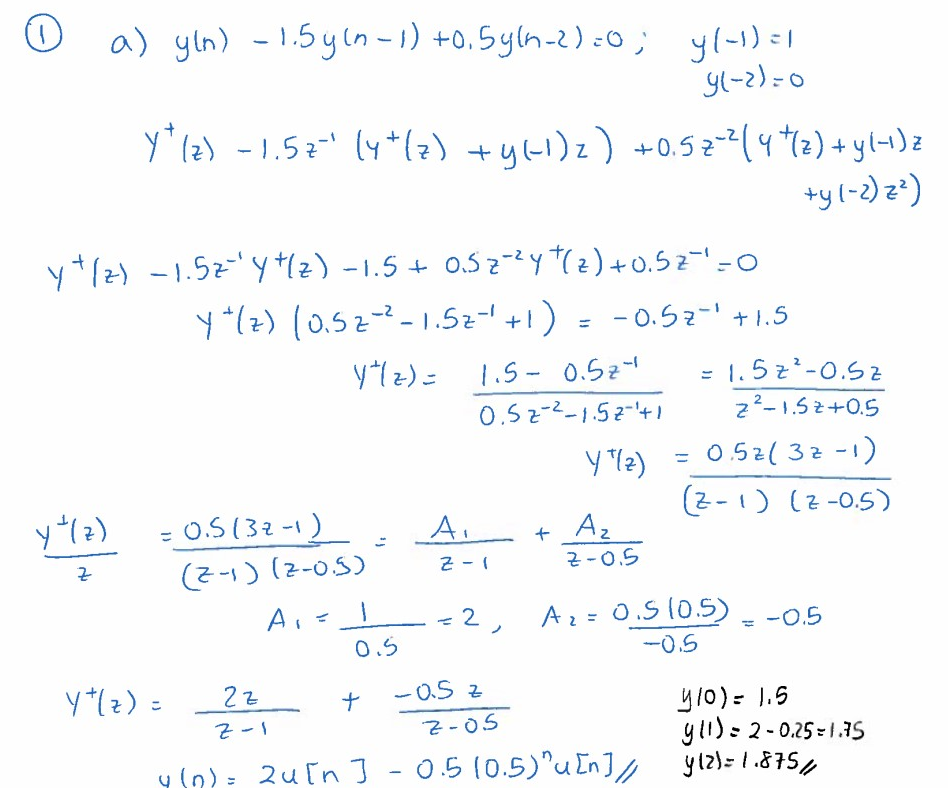 ① a) y(n) - 1.5y(n-1) + 0.5y(n-2) = 0 ; y(-1) = 1
y(-2) = 0
Y⁺(z) - 1.5z⁻¹ (Y⁺(z) + y(-1)z) + 0.5z⁻²(Y⁺(z) + y(-1)z
+y(-2)z²)
Y⁺(z) - 1.5z⁻¹Y⁺(z) - 1.5 + 0.5z⁻²Y⁺(z) + 0.5z⁻¹ = 0
Y⁺(z) (0.5z⁻² - 1.5z⁻¹ + 1) = -0.5z⁻¹ + 1.5
Y⁺(z) = (1.5 - 0.5z⁻¹) / (0.5z⁻² - 1.5z⁻¹ + 1) = (1.5z² - 0.5z) / (z² - 1.5z + 0.5)
Y⁺(z) = 0.5z(3z - 1) / (z-1) (z-0.5)
Y⁺(z) / z = 0.5(3z-1) / (z-1)(z-0.5) = A₁ / (z-1) + A₂ / (z-0.5)
A₁ = 1 / 0.5 = 2, A₂ = 0.5(0.5) / -0.5 = -0.5
Y⁺(z) = 2z / (z-1) + -0.5z / (z-05)
y(n) = 2u[n] - 0.5(0.5)ⁿu[n] //
y(0) = 1.5
y(1) = 2 - 0.25 = 1.75
y(2) = 1.875 //